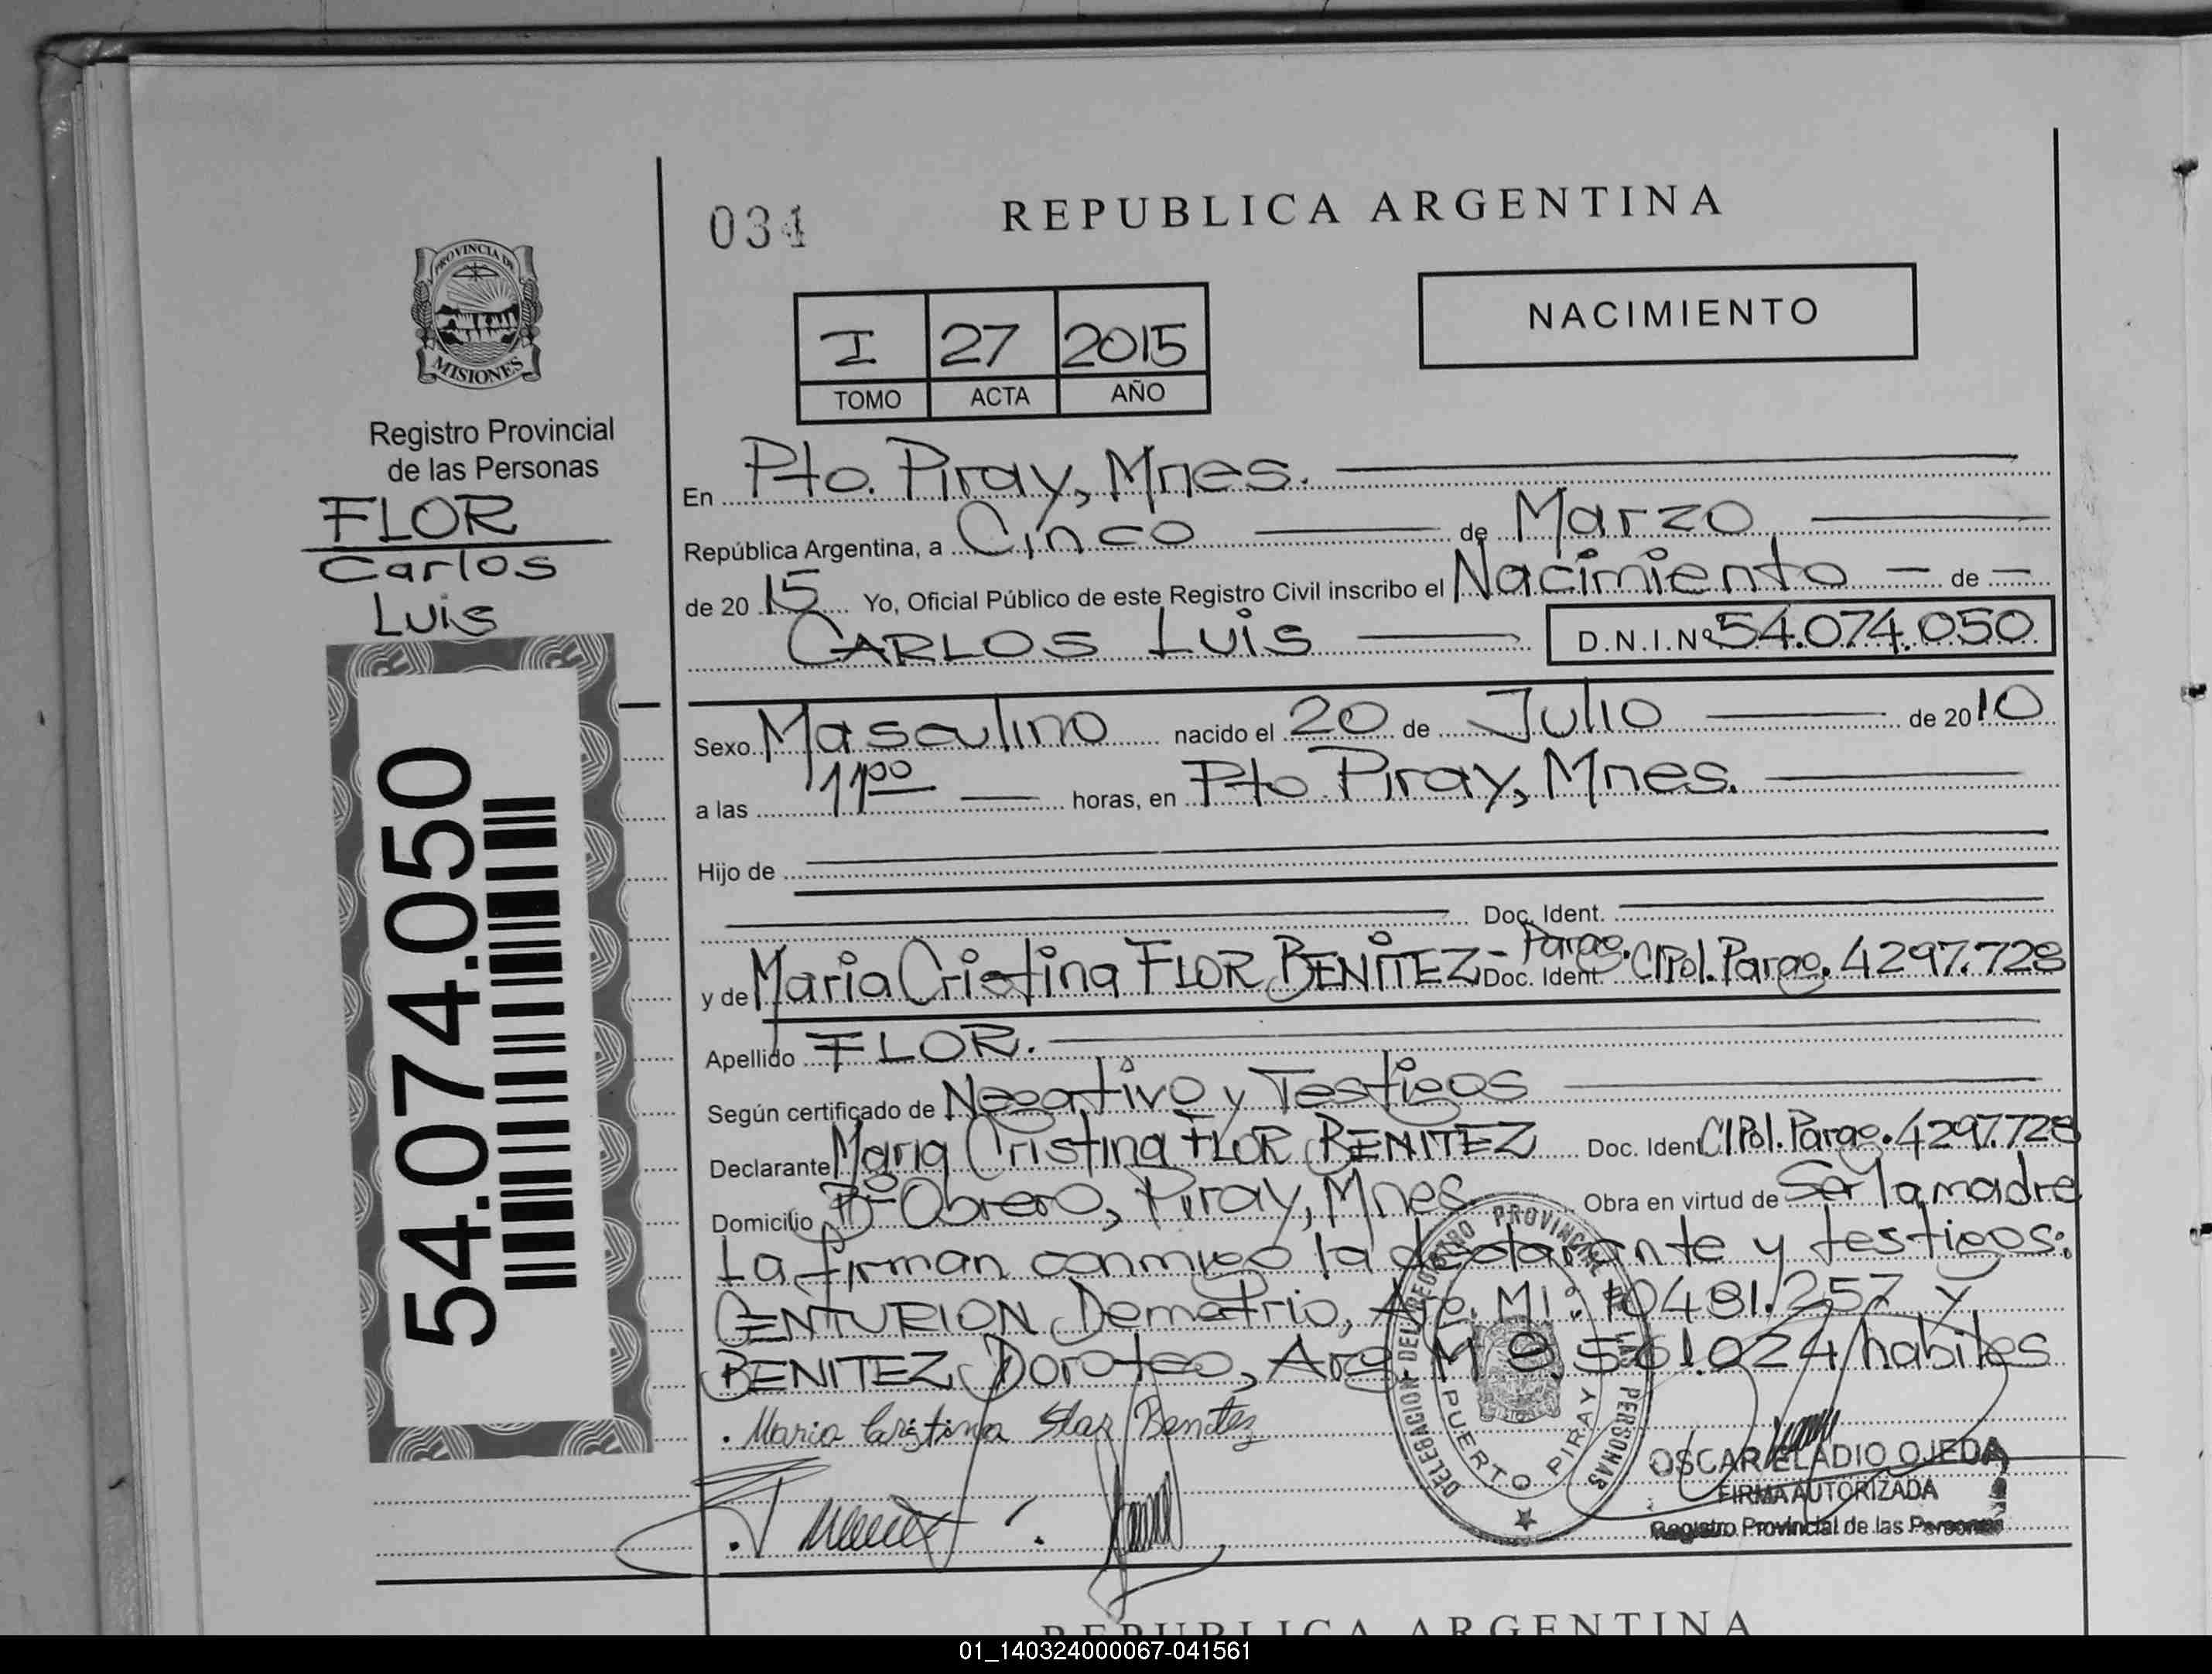 034
REPUBLICA ARGENTINA
PROVINCIA DE
MISIONES
Registro Provincial
de las Personas
FLOR
Carlos
Luis
54.074.050
I 27 2015
TOMO ACTA AÑO
NACIMIENTO
En Pto. Piray, Mnes.
República Argentina, a Cinco de Marzo
de 20 15 Yo, Oficial Público de este Registro Civil inscribo el Nacimiento - de -
CARLOS Luis D.N.I.Nº 54.074.050
Sexo Masculino nacido el 20 de Julio de 20 10
a las 11 00 horas, en Pto Piray, Mnes.
Hijo de
Doc. Ident.
y de Maria Cristina FLOR BENITEZ - Parag. Doc. Ident. CI Pol. Parag. 4297.728
Apellido FLOR.
Según certificado de Negativo y Testigos
Declarante Maria Cristina FLOR BENITEZ Doc. Ident CI Pol. Parag. 4297.728
Domicilio Bº Obrero, Piray, Mnes. Obra en virtud de Ser la madre
La firman conmigo la declarante y testigos:
CENTURION Demetrio, Arg. MI: 10481.257 y
BENITEZ Doroteo, Arg. M 561.024/habiles
. Maria Cristina Flor Benitez
DELEGACION DEL REGISTRO PROVINCIAL DE LAS PERSONAS
PUERTO PIRAY
OSCAR ELADIO OJEDA
FIRMA AUTORIZADA
Registro Provincial de las Personas
REPUBLICA ARGENTINA
01_140324000067-041561